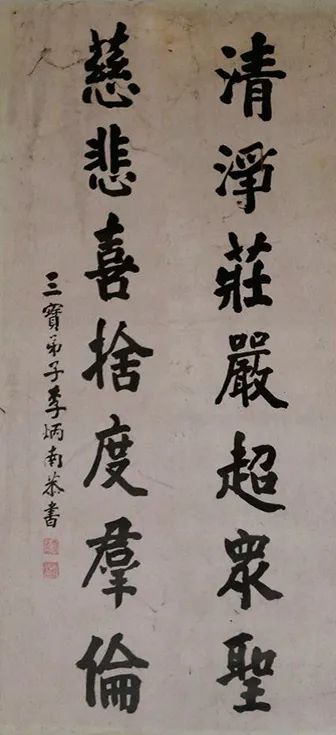 清淨莊嚴超眾聖
慈悲喜捨度羣倫
三寶弟子李炳南恭書